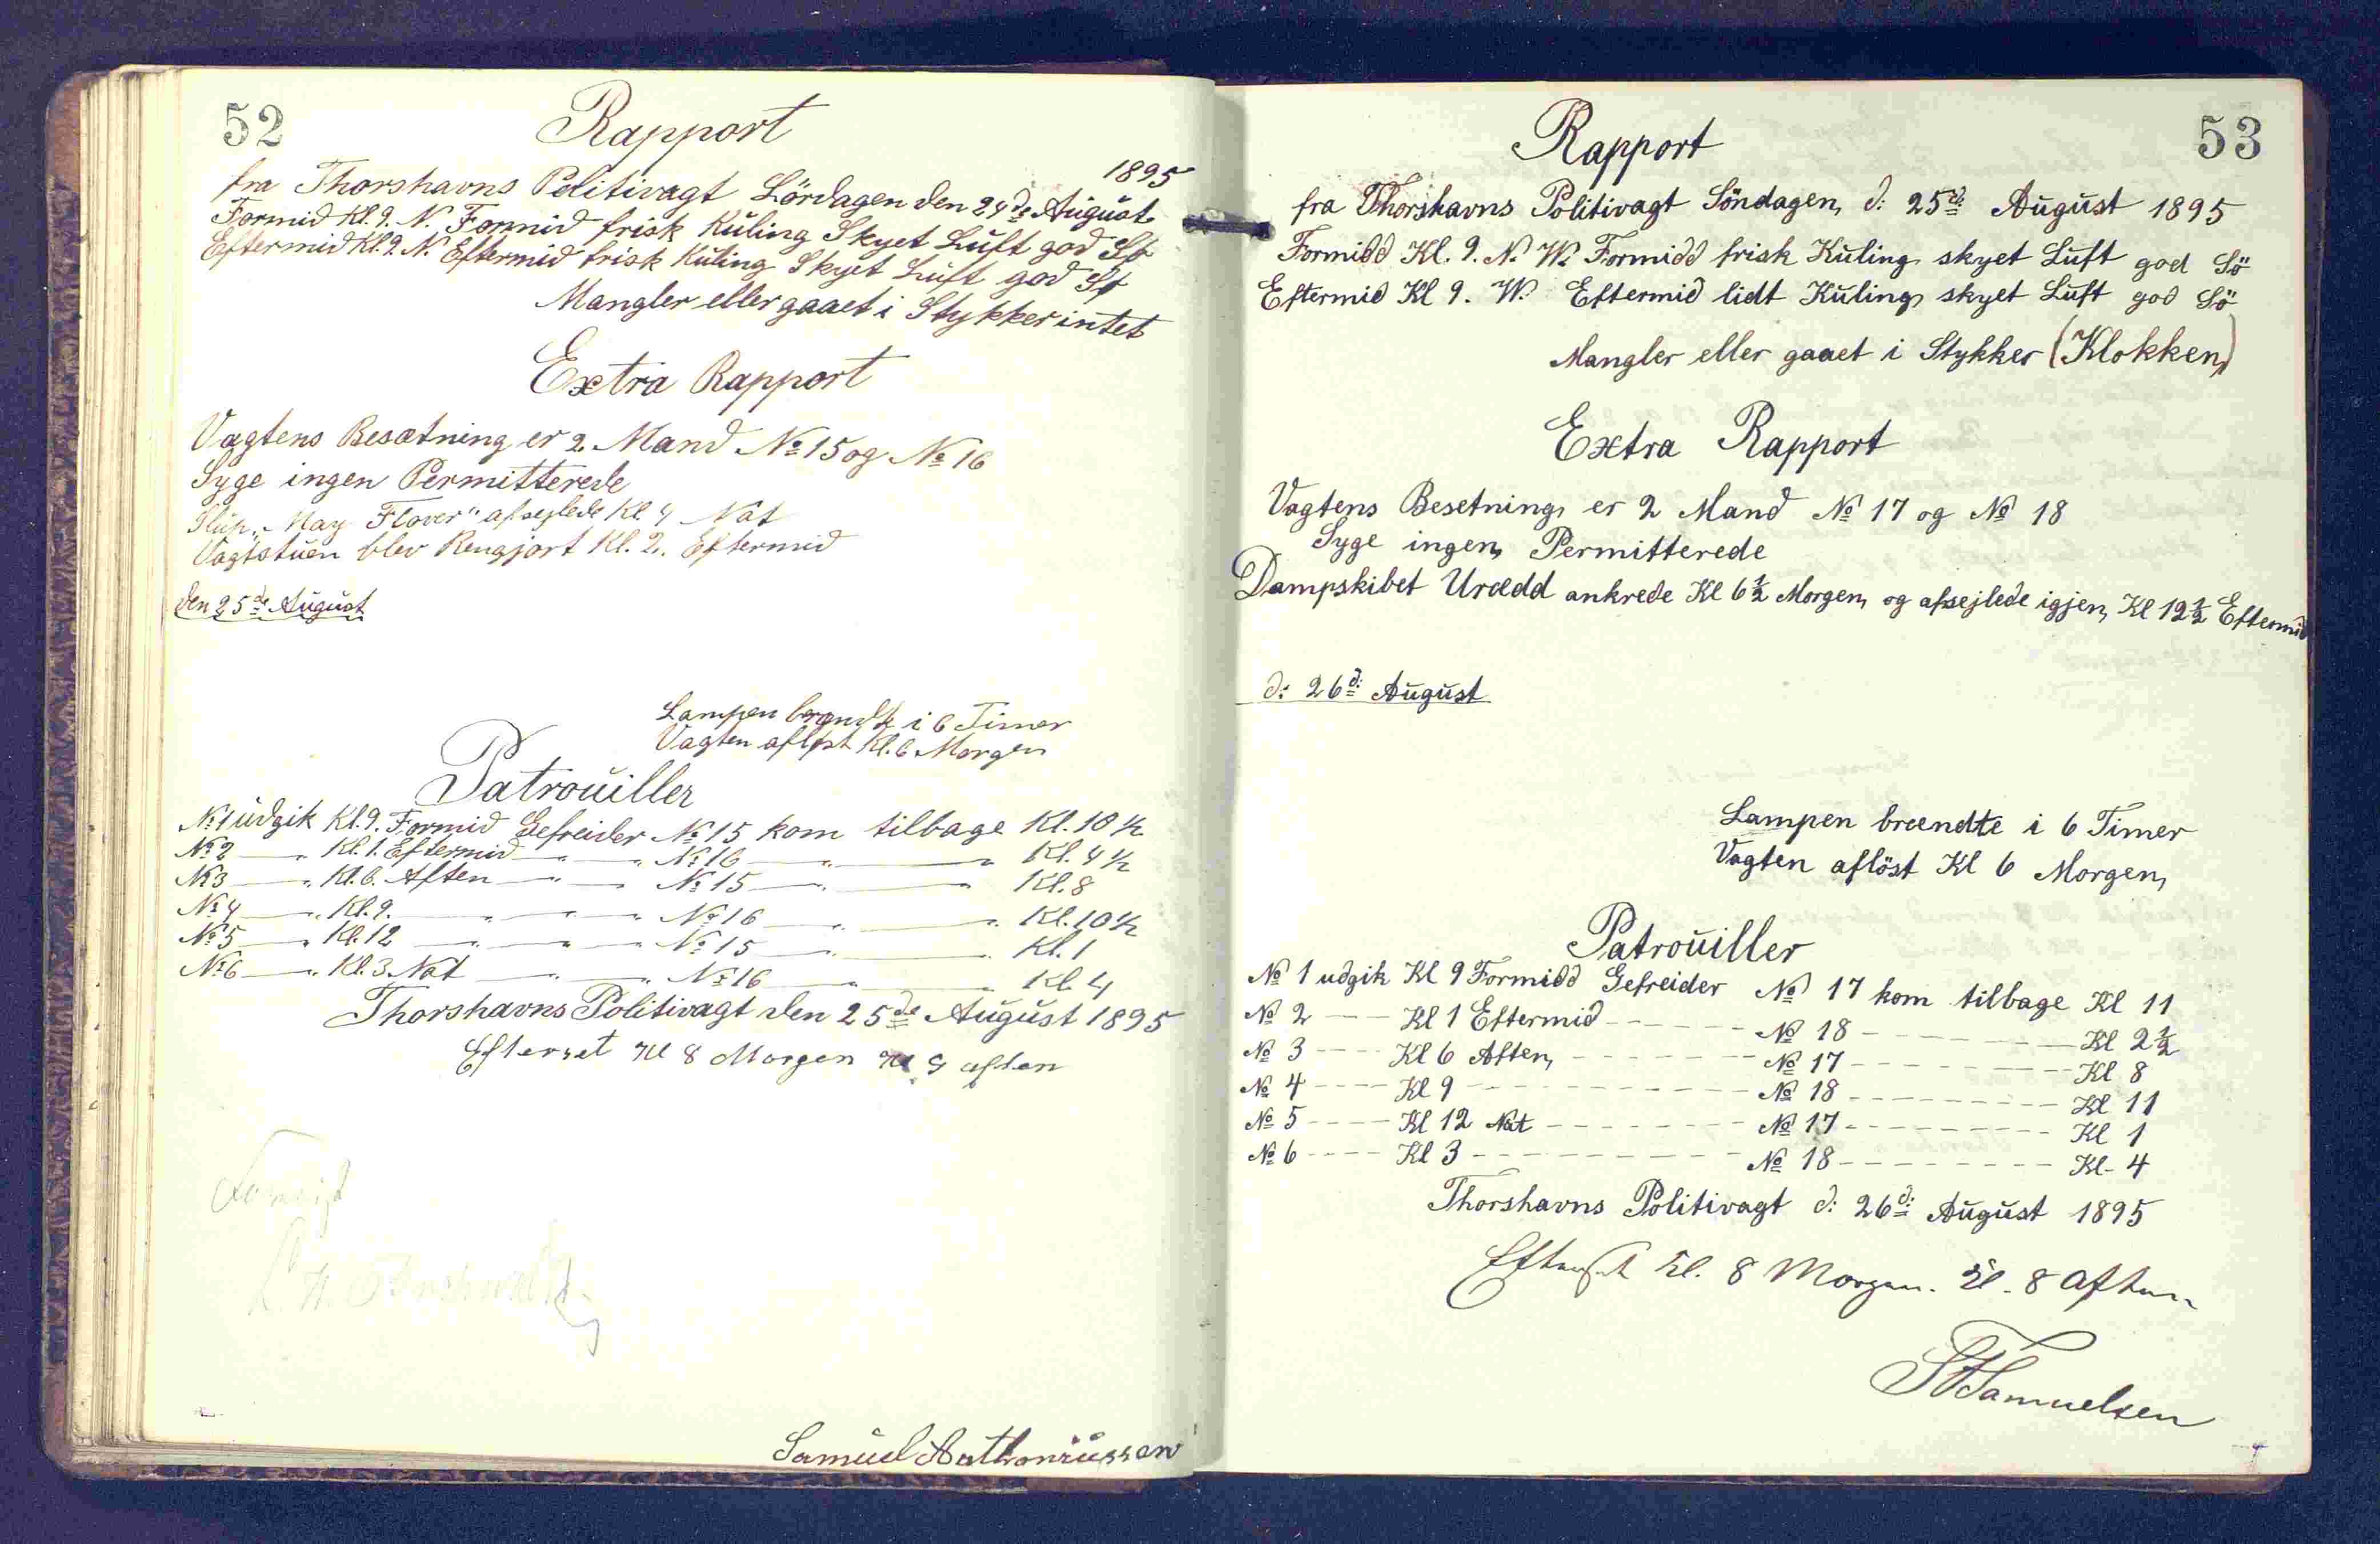 52
Rapport
1895
fra Thorshavns Politivagt Lördagen den 24de August
Formid Kl. 9. N. Formid frisk Kúling Skyet Lúft god Sø
Eftermid Kl. 9. N. Eftermid frisk Kúling Skyet Lúft god Sø
Mangler eller gaaet i Stykker intet
Extra Rapport
Vagtens Besætning er 2 Mand No 15 og No 16
Syge ingen Permitterede
Slup „May Flover" afseglede Kl. 4 Nat
Vagtstúen blev Rengjort Kl. 2. Eftermid
den 25de August
Lampen brændte i 6 Timer
Vagten afløst Kl. 6 Morgen
Patroúiller
No 1 údgik Kl. 9. Formid Gefreider No 15 kom tilbage Kl. 10 1/2
No 2 — „ Kl. 1. Eftermid — „ — „ No 16 — „ — „ Kl. 4 1/2
No 3 — „ Kl. 6. Aften — „ — No 15 — „ — „ Kl. 8
No 4 — „ Kl. 9. — „ — „ — „ No 16 — „ — „ Kl. 10 1/2
No 5 — „ Kl. 12 — „ — „ — „ No 15 — „ — „ Kl. 1
No 6 — „ Kl. 3 Nat — „ — „ No 16 — „ — „ Kl. 4
Thorshavns Politivagt den 25de Aúgúst 1895
Efterset Kl 8 Morgen Kl 9 aften
Samúel
53
Rapport
fra Thorshavns Politivagt Söndagen, d: 25d: Aúgúst 1895
Formidd Kl. 9. N. W. Formidd frisk Kúling skyet Lúft god Sö
Eftermid Kl 9. W. Eftermid lidt Kúling skyet Lúft god Sö
Mangler eller gaaet i Stykker (Klokken)
Extra Rapport
Vagtens Besetning er 2 Mand No 17 og No 18
Syge ingen Permitterede
Dampskibet Urædd ankrede Kl 6 1/2 Morgen og afsejlede igjen Kl 12 1/2 Eftermid
d: 26d: Aúgúst
Lampen brændte i 6 Timer
Vagten aflöst Kl 6 Morgen
Patroúiller
No 1 udgik Kl 9 Formidd Gefreider No 17 kom tilbage Kl 11
No 2 --- Kl 1 Eftermid ----- No 18 ------- Kl 2 1/2
No 3 ---- Kl 6 Aften ------- No 17 ------- Kl 8
No 4 ---- Kl 9 ---------- No 18 -------- Kl 11
No 5 ---- Kl 12 Nat -------- No 17 -------- Kl 1
No 6 ---- Kl 3 ---------- No 18 ------- Kl - 4
Thorshavns Politivagt d: 26d: Aúgúst 1895
Efterset Kl. 8 Morgen. Kl. 8 Aften
Samuelsen